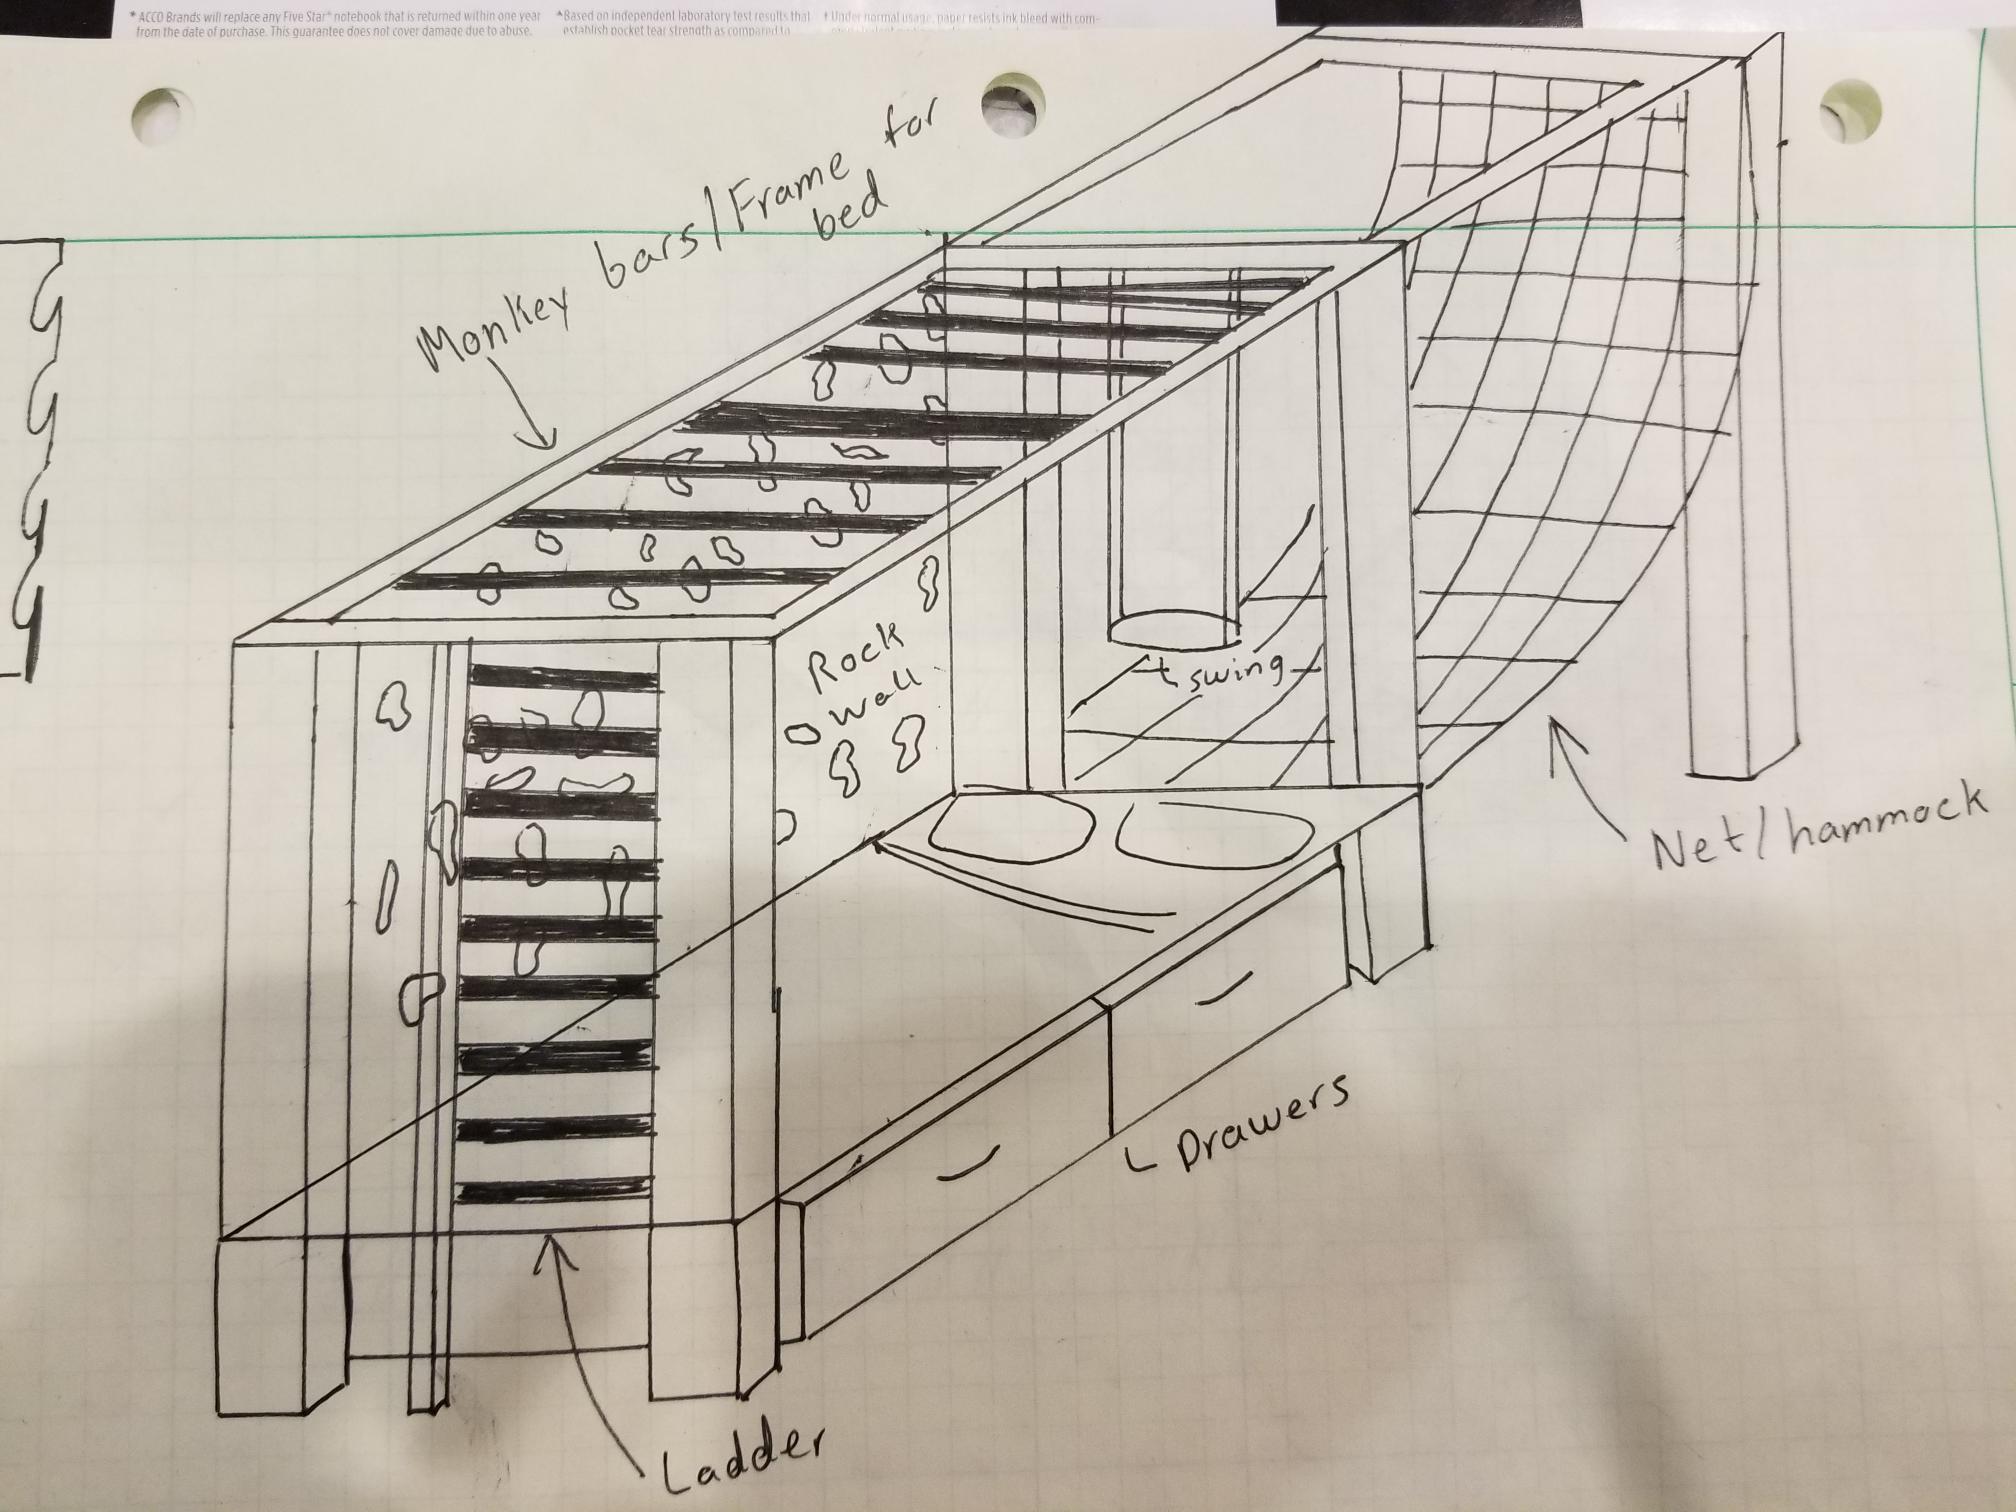 * ACCO Brands will replace any Five Star® notebook that is returned within one year
from the date of purchase. This guarantee does not cover damage due to abuse.
*Based on independent laboratory test results that
establish pocket tear strength as compared to
† Under normal usage, paper resists ink bleed with com-
Monkey bars/Frame for
bed
Rock
wall
swing
Ladder
Drawers
Net/hammock